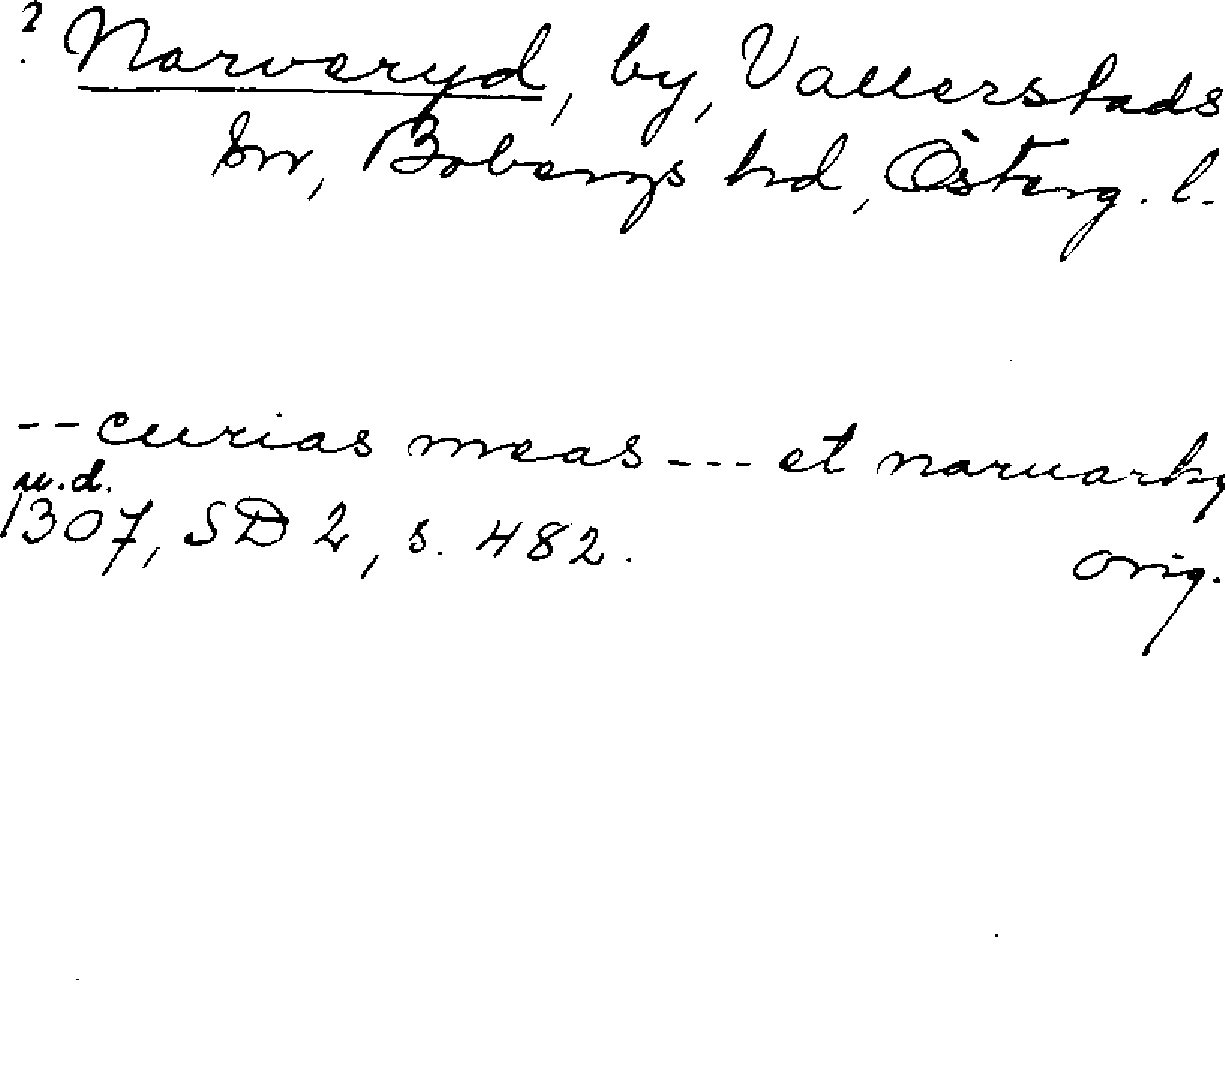 ? Narveryd, by, Vallerstads
sn, Bobergs hd, Österg. l.
-- curias meas --- et naruarþ
u.d.
1307, SD 2, s. 482.
orig.